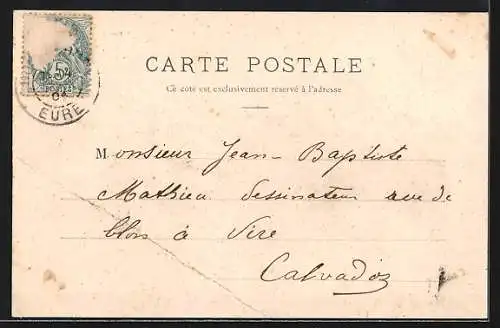 5
04
EURE
CARTE POSTALE
Ce côté est exclusivement réservé à l'adresse
Monsieur Jean-Baptiste
Mathieu dessinateur rue de
à Vire
Calvados